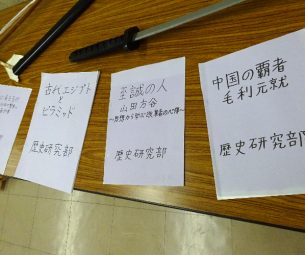 古代エジプト
と
ピラミッド
歴史研究部
至誠の人
山田方谷
歴史研究部
中国の覇者
毛利元就
歴史研究部